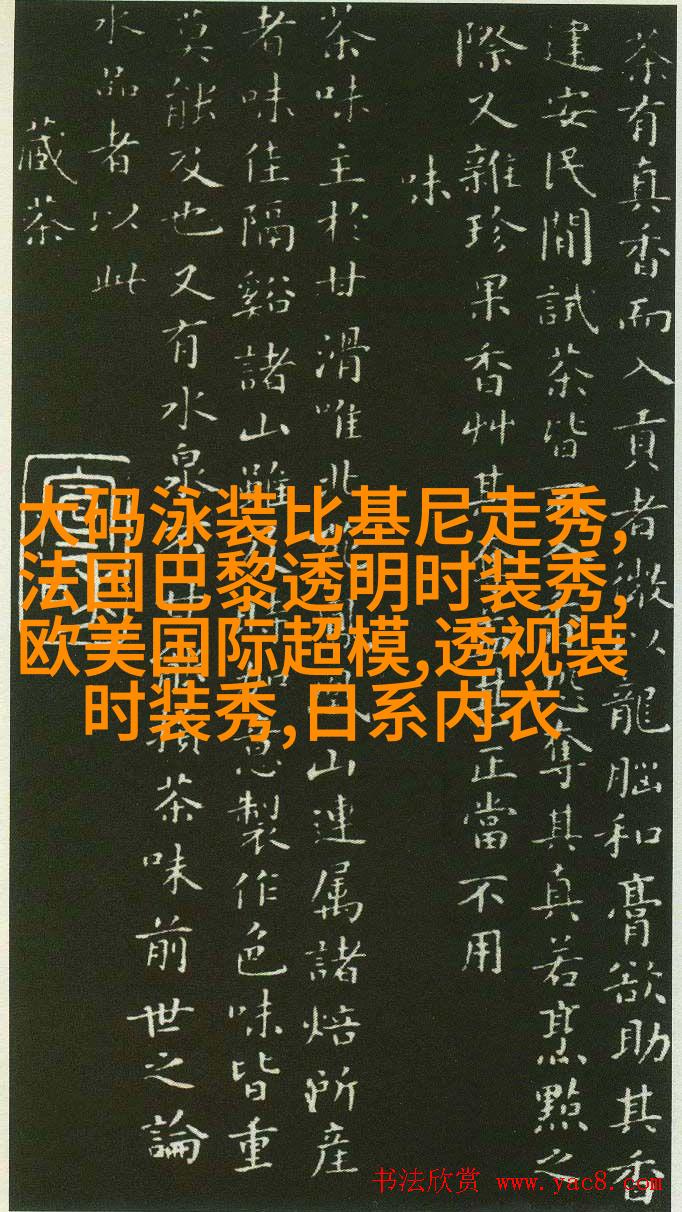 茶有真香而入貢者微以龍腦和膏欲助其香
建安民間試茶皆奪其真若烹點之
際又雜珍果香艸其正當不用
味
茶味主於甘滑唯北山連属諸焙所產
者味佳隔谿諸山雖意製作色味皆重
莫能及也又有水泉茶味前世之論
水品者以此
藏茶
大码泳装比基尼走秀,
法国巴黎透明时装秀,
欧美国际超模,透视装
时装秀,日系内衣
书法欣赏 www.yac8.com